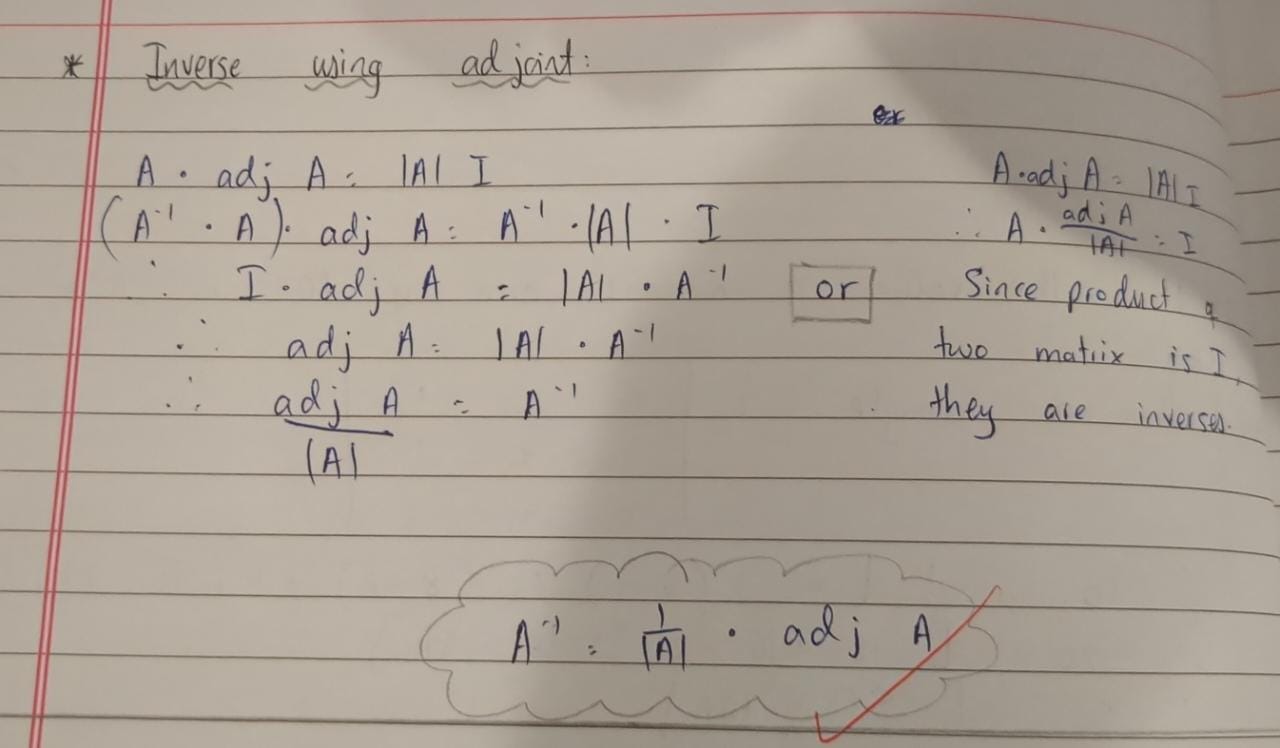 * Inverse using adjoint:
A · adj A = |A| I
(A⁻¹ · A) · adj A = A⁻¹ · |A| · I
∴ I · adj A = |A| · A⁻¹
∴ adj A = |A| · A⁻¹
∴ adj A / |A| = A⁻¹
or
A · adj A = |A| I
∴ A · adj A / |A| = I
Since product of
two matrix is I,
they are inverses.
A⁻¹ = 1/|A| · adj A